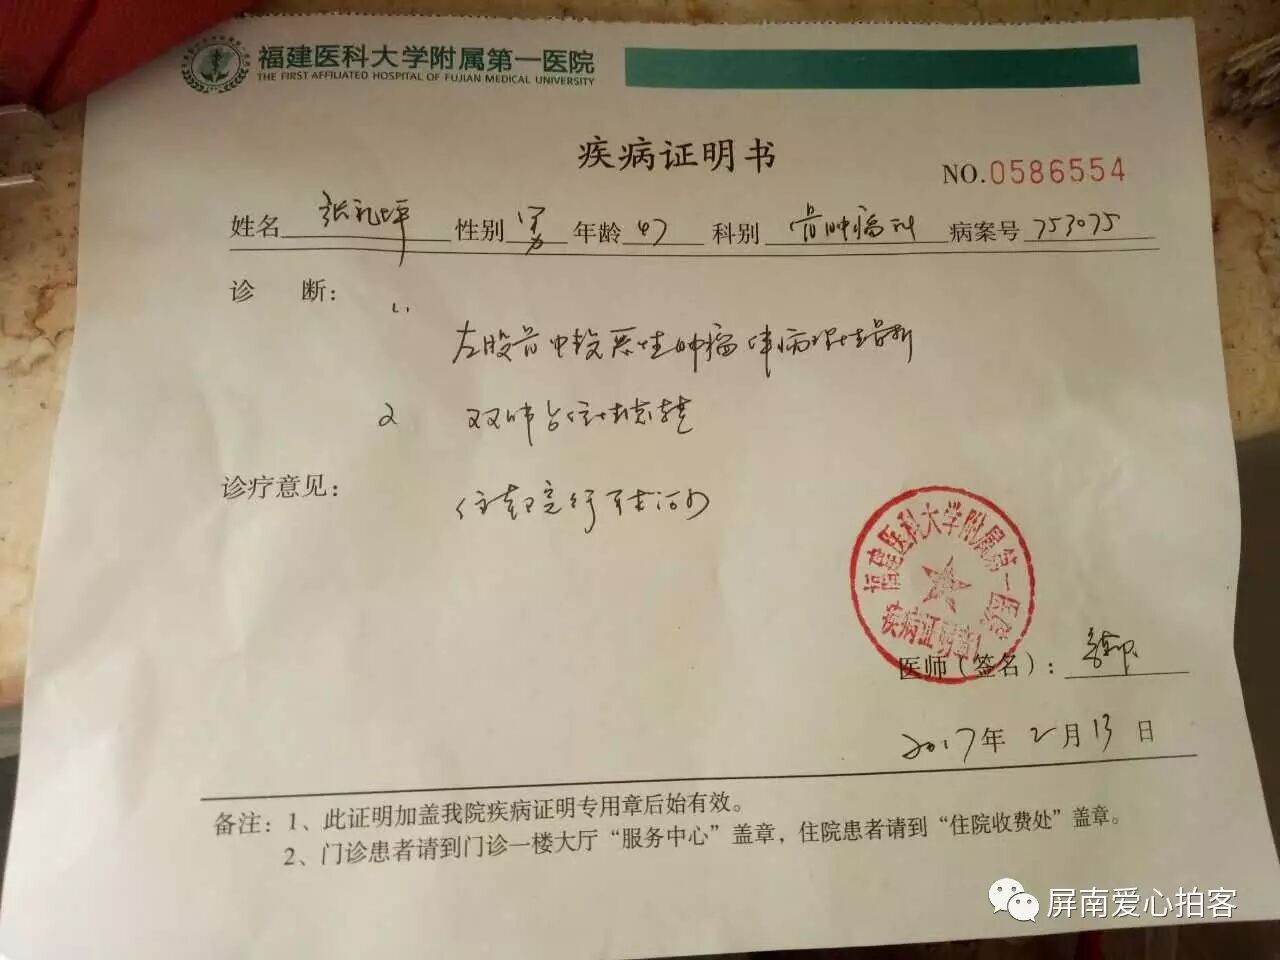 福建医科大学附属第一医院
THE FIRST AFFILIATED HOSPITAL OF FUJIAN MEDICAL UNIVERSITY
疾病证明书
NO.0586554
姓名 张礼坪 性别 男 年龄 47 科别 骨肿瘤科 病案号 753075
诊 断: 1.
左股骨中段恶性肿瘤伴病理性骨折
2 双肺占位
诊疗意见: 住院行
福建医科大学附属第一医院
疾病证明章
医师(签名):
2017年 2月 13日
备注: 1、此证明加盖我院疾病证明专用章后始有效。
2、门诊患者请到门诊一楼大厅“服务中心”盖章，住院患者请到“住院收费处”盖章。
屏南爱心拍客